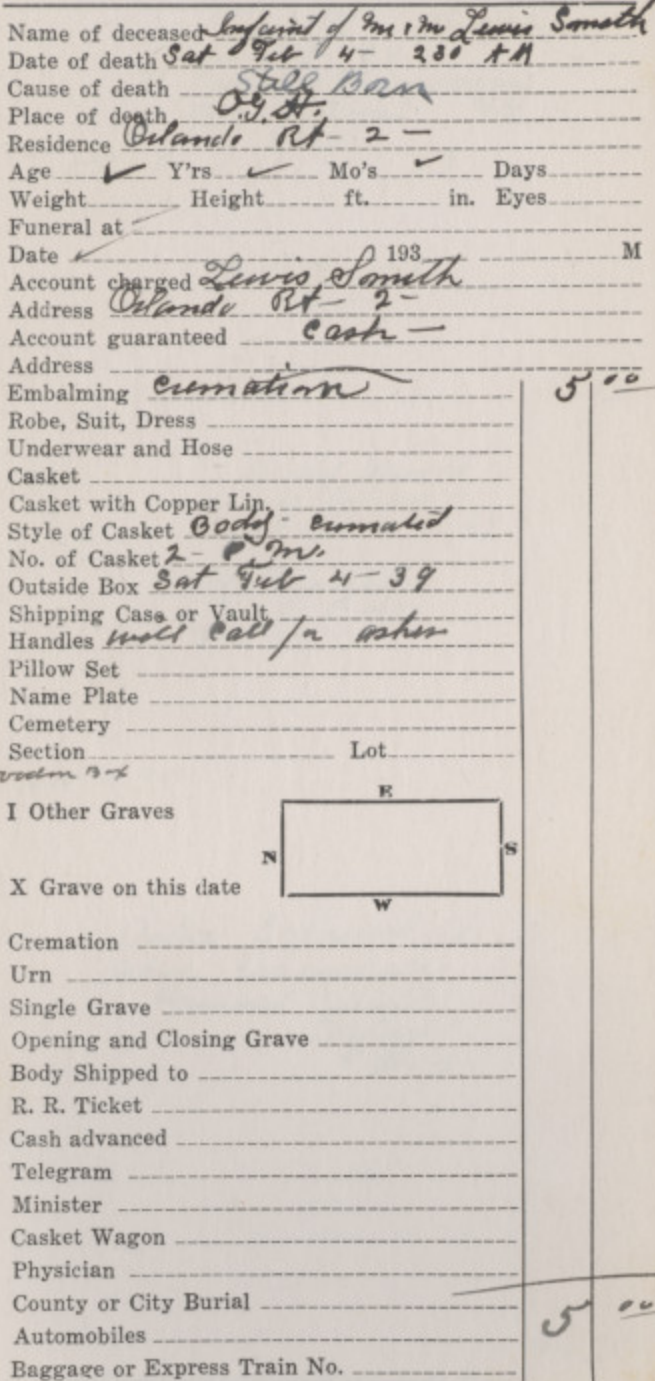 Name of deceased Infant of Mr & Mr Lewis Smith
Date of death Sat Feb 4- 230 AM
Cause of death Still Born
Place of death O.G.H.
Residence Orlando Rt- 2 -
Age ✓ Y'rs ✓ Mo's ✓ Days
Weight Height ft. in. Eyes
Funeral at
Date ✓ 193 M
Account charged Lewis Smith
Address Orlando Rt- 2-
Account guaranteed Cash -
Address
Embalming Cremation 5 00
Robe, Suit, Dress
Underwear and Hose
Casket
Casket with Copper Lin.
Style of Casket Body - cremated
No. of Casket 2- P.M.
Outside Box Sat Feb 4-39
Shipping Case or Vault
Handles will call for ashes
Pillow Set
Name Plate
Cemetery
Section Lot
E
I Other Graves
N S
X Grave on this date
W
Cremation
Urn
Single Grave
Opening and Closing Grave
Body Shipped to
R. R. Ticket
Cash advanced
Telegram
Minister
Casket Wagon
Physician
County or City Burial 5 00
Automobiles
Baggage or Express Train No.